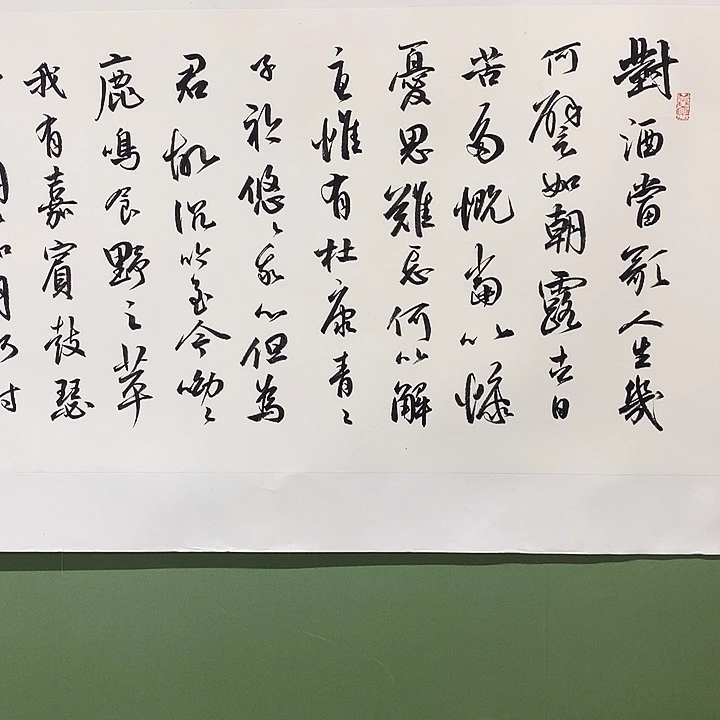 對酒當歌人生幾
何譬如朝露去日
苦多慨當以慷
憂思難忘何以解
憂惟有杜康青々
子衿悠々我心但為
君故沉吟至今呦々
鹿鳴食野之苹
我有嘉賓鼓瑟